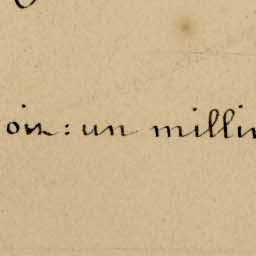 oir: un millin